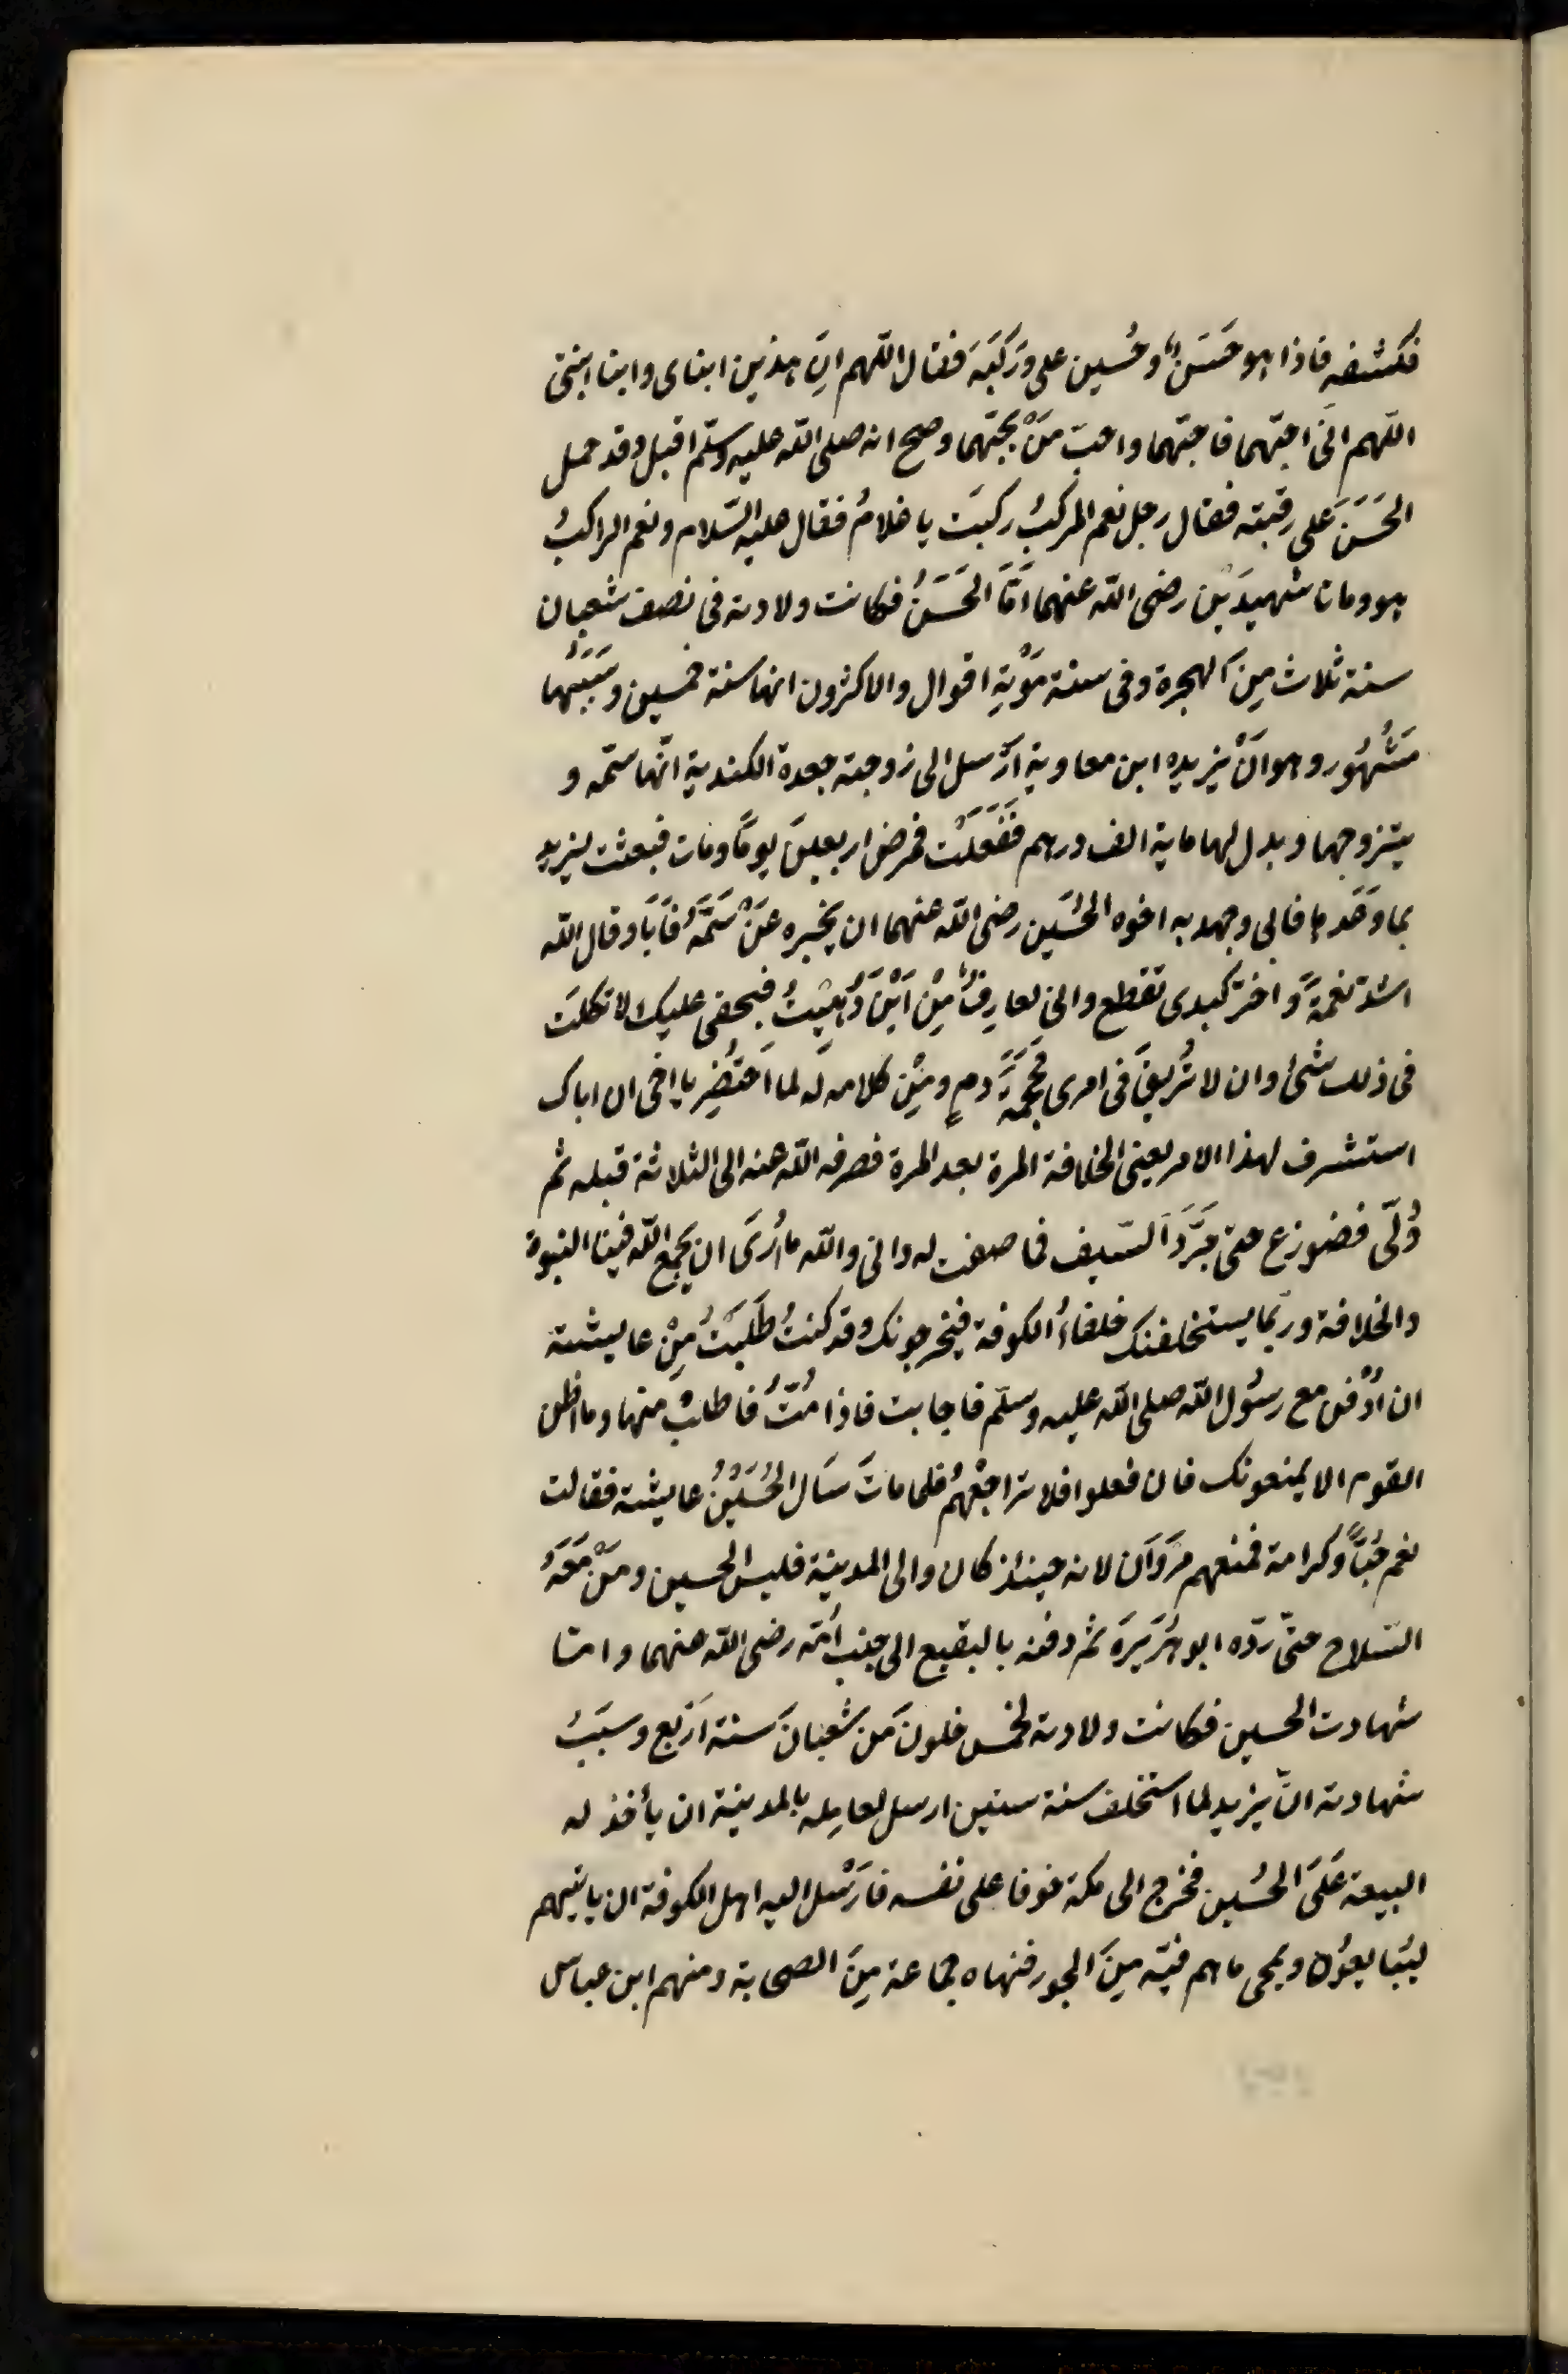 فكشفه فاذا هو حَسَنٌ وحُسين على وَرَكَيْهِ فقال اللّهم اِنَّ هذين ابناى وابنا ابنتى
اللّهم انّى احبّهما فاحبّهما واحبّ مَنْ يحبّهما وصح انه صلى اللّه عليه وسلّم اقبل وقد حمل
الحَسَنَ على رقبته فقال رجل نعم المركبُ ركبتَ يا غلامُ فقال عليه السّلام ونعم الراكبُ
هو وماتا شهيدَيْن رضى اللّه عنهما اَمَّا الحَسَنُ فكانت ولادته فى نصف شعبان
سنة ثلاث مِنَ الهجرة وفى سنة مَوْتِهِ اقوال والاكثرون انها سنة خمسين وسَبَبُها
مَشْهُور وهو اَنَّ يزيد ابن معاوية اَرْسل الى زوجته جعدة الكندية انّها سمّه و
يتزوجها وبدل لها ماية الف درهم فَفَعَلَتْ فمرض اربعينَ يومًا ومات فبعثت ليزيد
بما وَعَدها فابى وجهد به اخوه الحُسَين رضى اللّه عنهما ان يخبره عَنْ سَمَّهُ فَاَبَا وقال اللّه
اشدّ نقمةً واخرّ كبدى تقطع وانى لعارِفٌ مِنْ اَيْنَ دُهِيتُ فبحقى عليك لا تكلمتَ
فى ذلك شئ وان لا تُريقَ فى امرى مَحْجَمَةَ دمٍ ومِنْ كلامه له لما احتُضِر يا اخى ان اباك
استشرف لهذا الامر يعنى الخلافة المرة بعد المرة فصرفه اللّه عنه الى الثلاثة قبله ثم
وُلّى فنوزع حتى جَرَّدَ السّيف فما صفت له وانى واللّه ما اُرَى ان يجمع اللّه فينا النبوة
والخلافة وربّما يستخلفنك خلفاءُ الكوفة فيخرجونك وقد كنتُ طَلَبْتُ مِنْ عايشة
ان اُدْفن مع رسُول اللّه صلى اللّه عليه وسلّم فاجابت فاذا مُتُّ فاطلبْ منها وما اظن
القوم الا يمنعونك فان فعلوا فلا تراجعْهُم فلما ماتَ سَال الحُسَيْنُ عايشة فقالت
نعم حُبًّا وكرامة فمنعهم مَرْوَان لانه حينئذ كان والى المدينة فلبس الحسين ومَنْ مَعَهُ
السّلاح حتّى ردّه ابو هُرَيرَة ثم دفنه بالبقيع الى جنب اُمّه رضى اللّه عنهما وامّا
شهادت الحسين فكانت ولادته لخمس خلونَ مَن شعبانَ سنة اَرْبع وسبَبُ
شهادته انّ يزيد لما استخلف سنة ستين ارسل لعامِله بالمدينة ان يأخذ له
البيعة عَلَى الحُسَين فخرج الى مكة خوفا على نفسه فاَرْسل اليه اهل الكوفة ان ياتيهم
ليُبايعُوه ويمحى ماهم فيّه مِنَ الجور فنهاه جماعة مِنَ الصحابة ومنهم ابن عباس